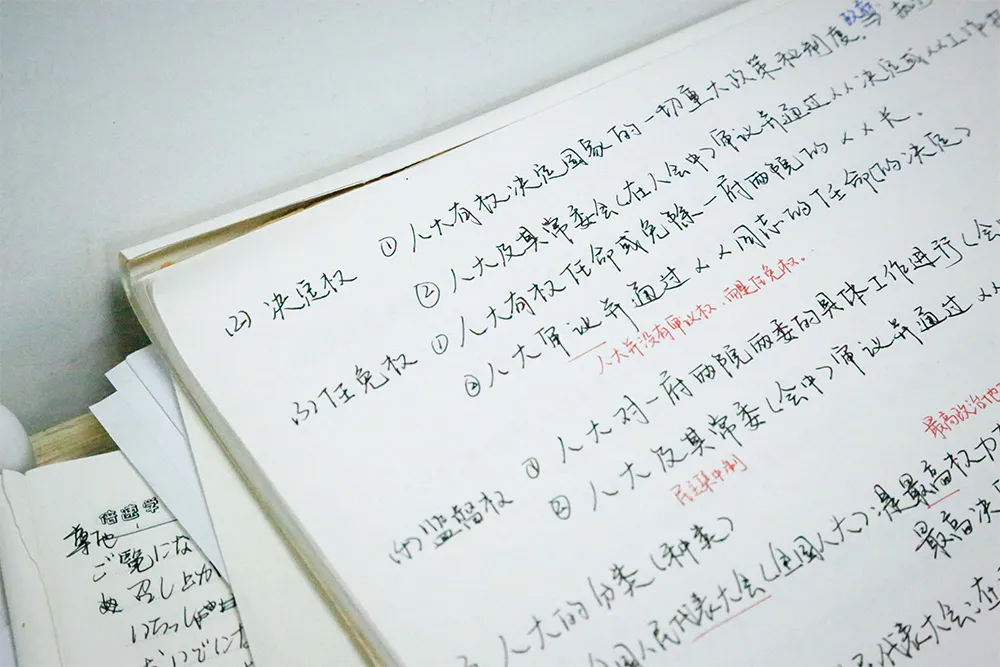 政府
(2) 决定权 ① 人大有权决定国家的一切重大政策和制度。
② 人大及其常委会(在人会中)审议并通过××决定或××工作
(3) 任免权 ① 人大有权任命或免除一府两院的××长.
② 人大审议并通过××同志的任命(的决定)
人大并没有审议权,而是任免权.
(4) 监督权 ① 人大对一府两院两委的具体工作进行(会
② 人大及其常委(会中)审议并通过××
民主集中制
最高政治地
人大的分类(种类)
国人民代表大会(全国人大):是最高权力
最高决
代表大会:在
倍速学
尊他
ご覧にな
召し上が
いらっしゃ
おいでにな